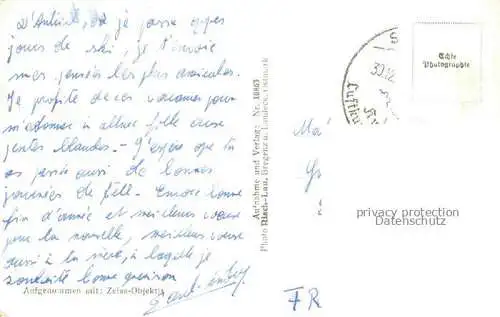 D'Autriche, où je passe qques
jours de ski, je t'envoie
mes pensées les plus amicales.
Je profite de ces vacances pour
m'adonner à
pentes blanches. - J'espère que tu
as passé aussi de bonnes
journées de fête. Encore bonne
fin d'année et meilleurs vœux
pour la nouvelle, meilleurs vœux
aussi à ta mère, à laquelle je
souhaite bonne guérison
Aufgenommen mit: Zeiss-Objektiv
Aufnahme und Verlag: Nr. 10863
Photo Risch-Lau, Bregenz a. Bodensee-Ostmark
30.12.
Luftku
Echte
Photographie
privacy protection
Datenschutz
FR